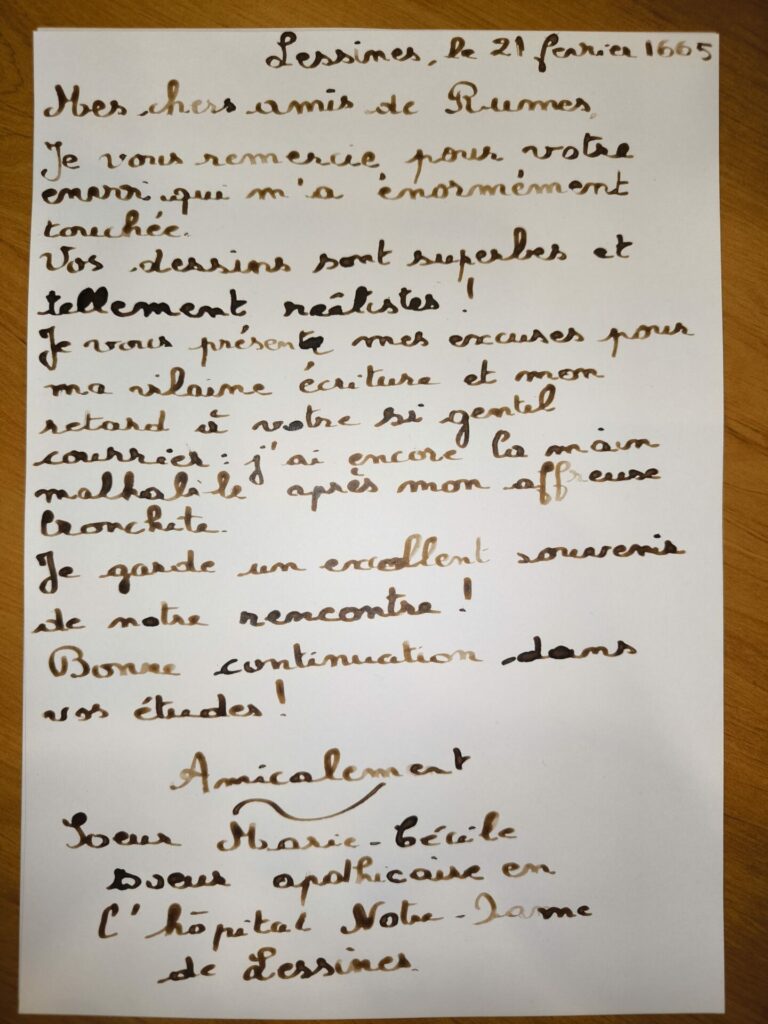 Lessines, le 21 février 1665
Mes chers amis de Rumes,
Je vous remercie pour votre
envoi qui m'a énormément
touchée.
Vos dessins sont superbes et
tellement réalistes !
Je vous présente mes excuses pour
ma vilaine écriture et mon
retard à votre si gentil
courrier : j'ai encore la main
malhabile après mon affreuse
bronchite.
Je garde un excellent souvenir
de notre rencontre !
Bonne continuation dans
vos études !
Amicalement
Soeur Marie-Cécile
soeur apothicaire en
l'hôpital Notre-Dame
de Lessines.